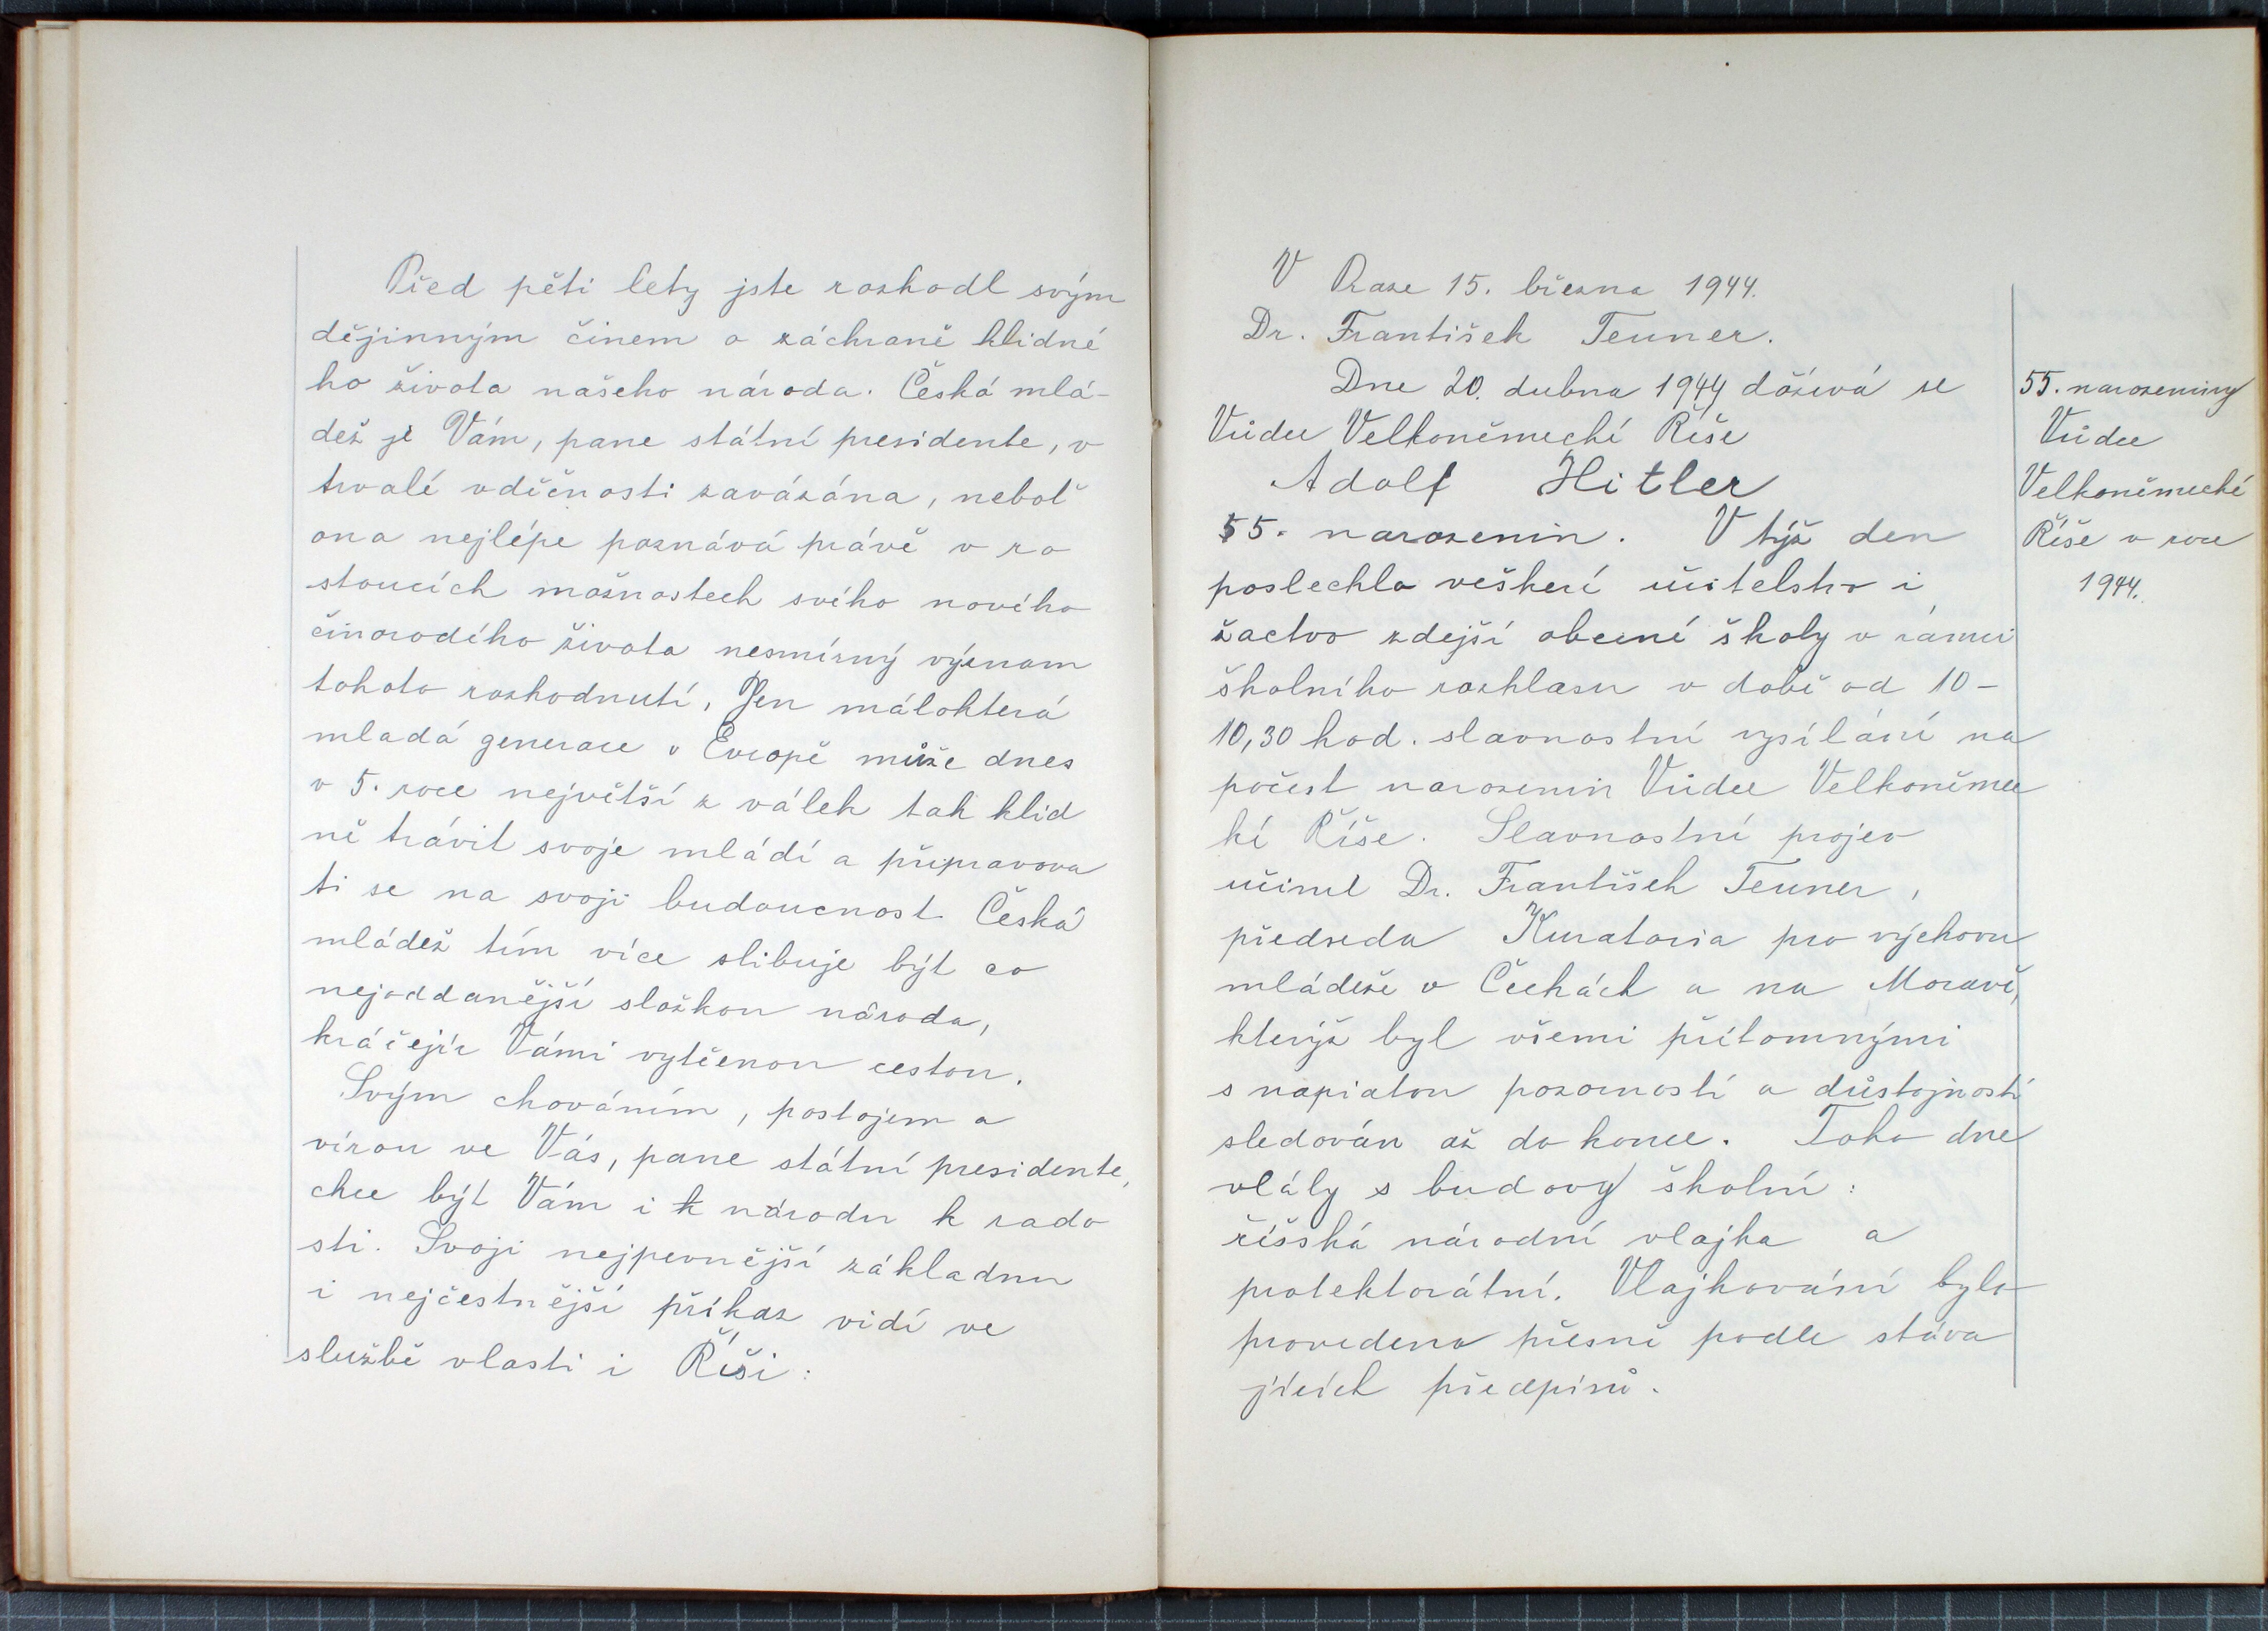 Před pěti lety jste rozhodl svým
dějinným činem o záchraně klidné
ho života našeho národa. Česká mlá-
dež je Vám, pane státní presidente, v
trvalé vděčnosti zavázána, neboť
ona nejlépe poznává právě v ro
stoucích možnostech svého nového
činorodého života nesmírný význam
tohoto rozhodnutí, Jen málokterá
mladá generace v Evropě může dnes
v 5. roce největší z válek tak klid
ně trávit svoje mládí a připravova
ti se na svoji budoucnost. Česká
mládež tím více slibuje být co
nejoddanější složkou národa,
kráčejíc Vámi vytčenou cestou.
Svým chováním, postojem a
vírou ve Vás, pane státní presidente,
chce být Vám i k národu k rado
sti. Svoji nejpevnější základnu
i nejčestnější příkaz vidí ve
službě vlasti i Říši:
V Praze 15. března 1944.
Dr. František Teuner.
Dne 20. dubna 1944 dožívá se
Vůdce Velkoněmecké Říše
Adolf Hitler
55. narozenin. V týž den
poslechlo veškeré učitelstvo i
žactvo zdejší obecné školy v rámci
školního rozhlasu v době od 10-
10,30 hod. slavnostní vysílání na
počest narozenin Vůdce Velkoněmec
ké Říše. Slavnostní projev
učinil Dr. František Teuner,
předseda Kuratoria pro výchovu
mládeže v Čechách a na Moravě,
kterýž byl všemi přítomnými
s napiatou pozorností a důstojností
sledován až do konce. Toho dne
vlály s budovy školní:
říšská národní vlajka a
protektorátní. Vlajkování bylo
provedeno přesně podle stáva
jících předpisů.
55. narozeniny
Vůdce
Velkoněmecké
Říše v roce
1944.